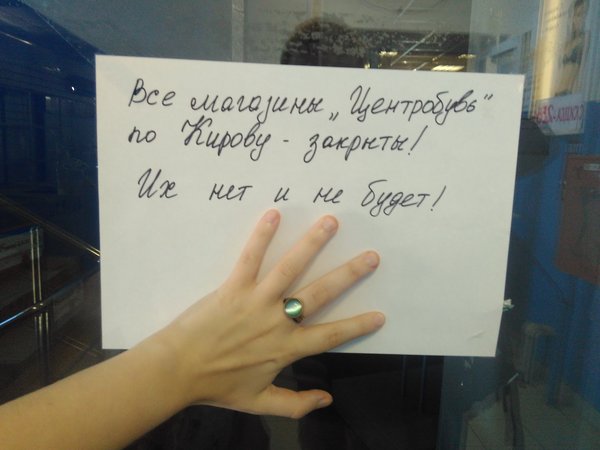 Все магазины „Центробувь"
по Кирову - закрыты!
Их нет и не будет!